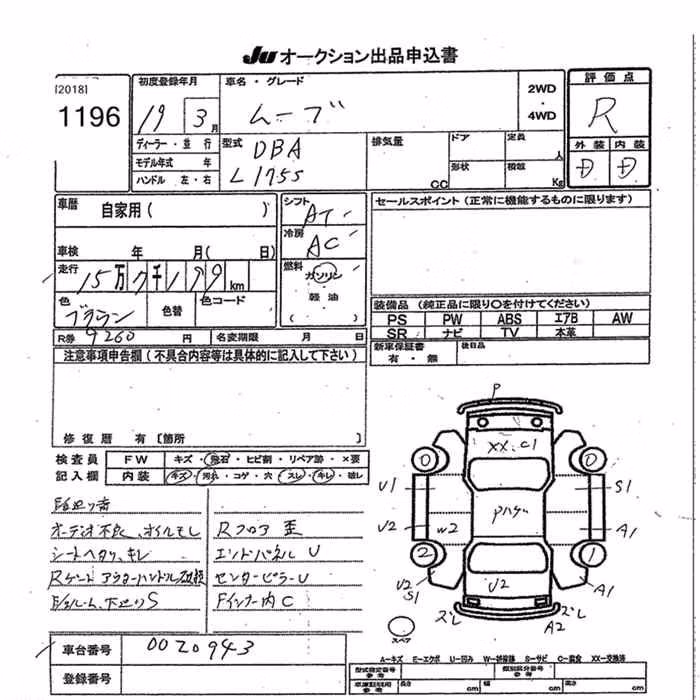 JU オークション出品申込書
[2018]
1196
初度登録年月
19 3月
車名・グレード
ムーブ
2WD
・
4WD
評価点
R
外装 内装
D D
ディーラー・並行
モデル年式 年
ハンドル 左・右
型式
DBA
L175S
排気量
CC
ドア
形状
定員
人
積載
Kg
車歴
自家用( )
車検 年 月( 日)
走行
15万7千199km
色
ブラウン
色替
色コード
R券 9260円
名変期限 月 日
シフト
AT
冷房
AC
燃料
ガソリン
軽油
( )
セールスポイント(正常に機能するものに限ります)
装備品 (純正品に限り〇を付けてください)
PS PW ABS エアB AW
SR ナビ TV 本革
新車保証書
有・無
後日品
注意事項申告欄(不具合内容等は具体的に記入して下さい)
修復歴 有[箇所 ]
検査員
記入欄
FW キズ・飛石・ヒビ割・リペア跡・×要
内装 キズ・汚れ・コゲ・穴・スレ・キレ・破レ
オーデオ不良、オイルモレ
シートヘタリ、キレ
Rゲートアウターハンドル破損
下廻りS
Rフロア歪
エンドパネルU
センターピラーU
Fインナー内C
車台番号 0020943
登録番号
P
XX.C1
0 0
U1 S1
Pハゲ
U2 W2 A1
2 1
U2
S1
U2
A1
ズレ ズレ
A2
スペア
A―キズ E―エクボ U―凹み W―補修跡 S―サビ C―腐食 XX―交換済
型式指定番号
参考
類別区分番号
参考
車庫証明用
参考
長さ cm
幅 cm
高さ cm